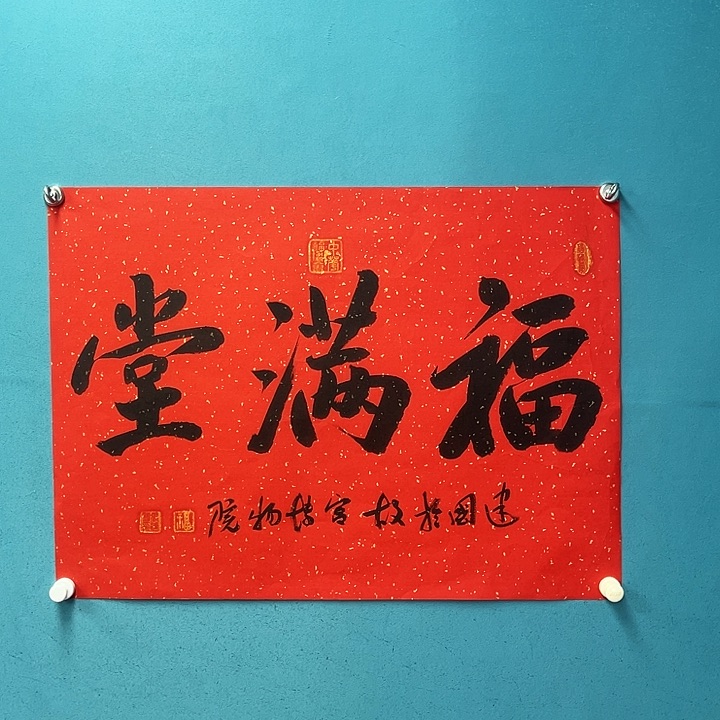 福满堂
建国于故宫博物院